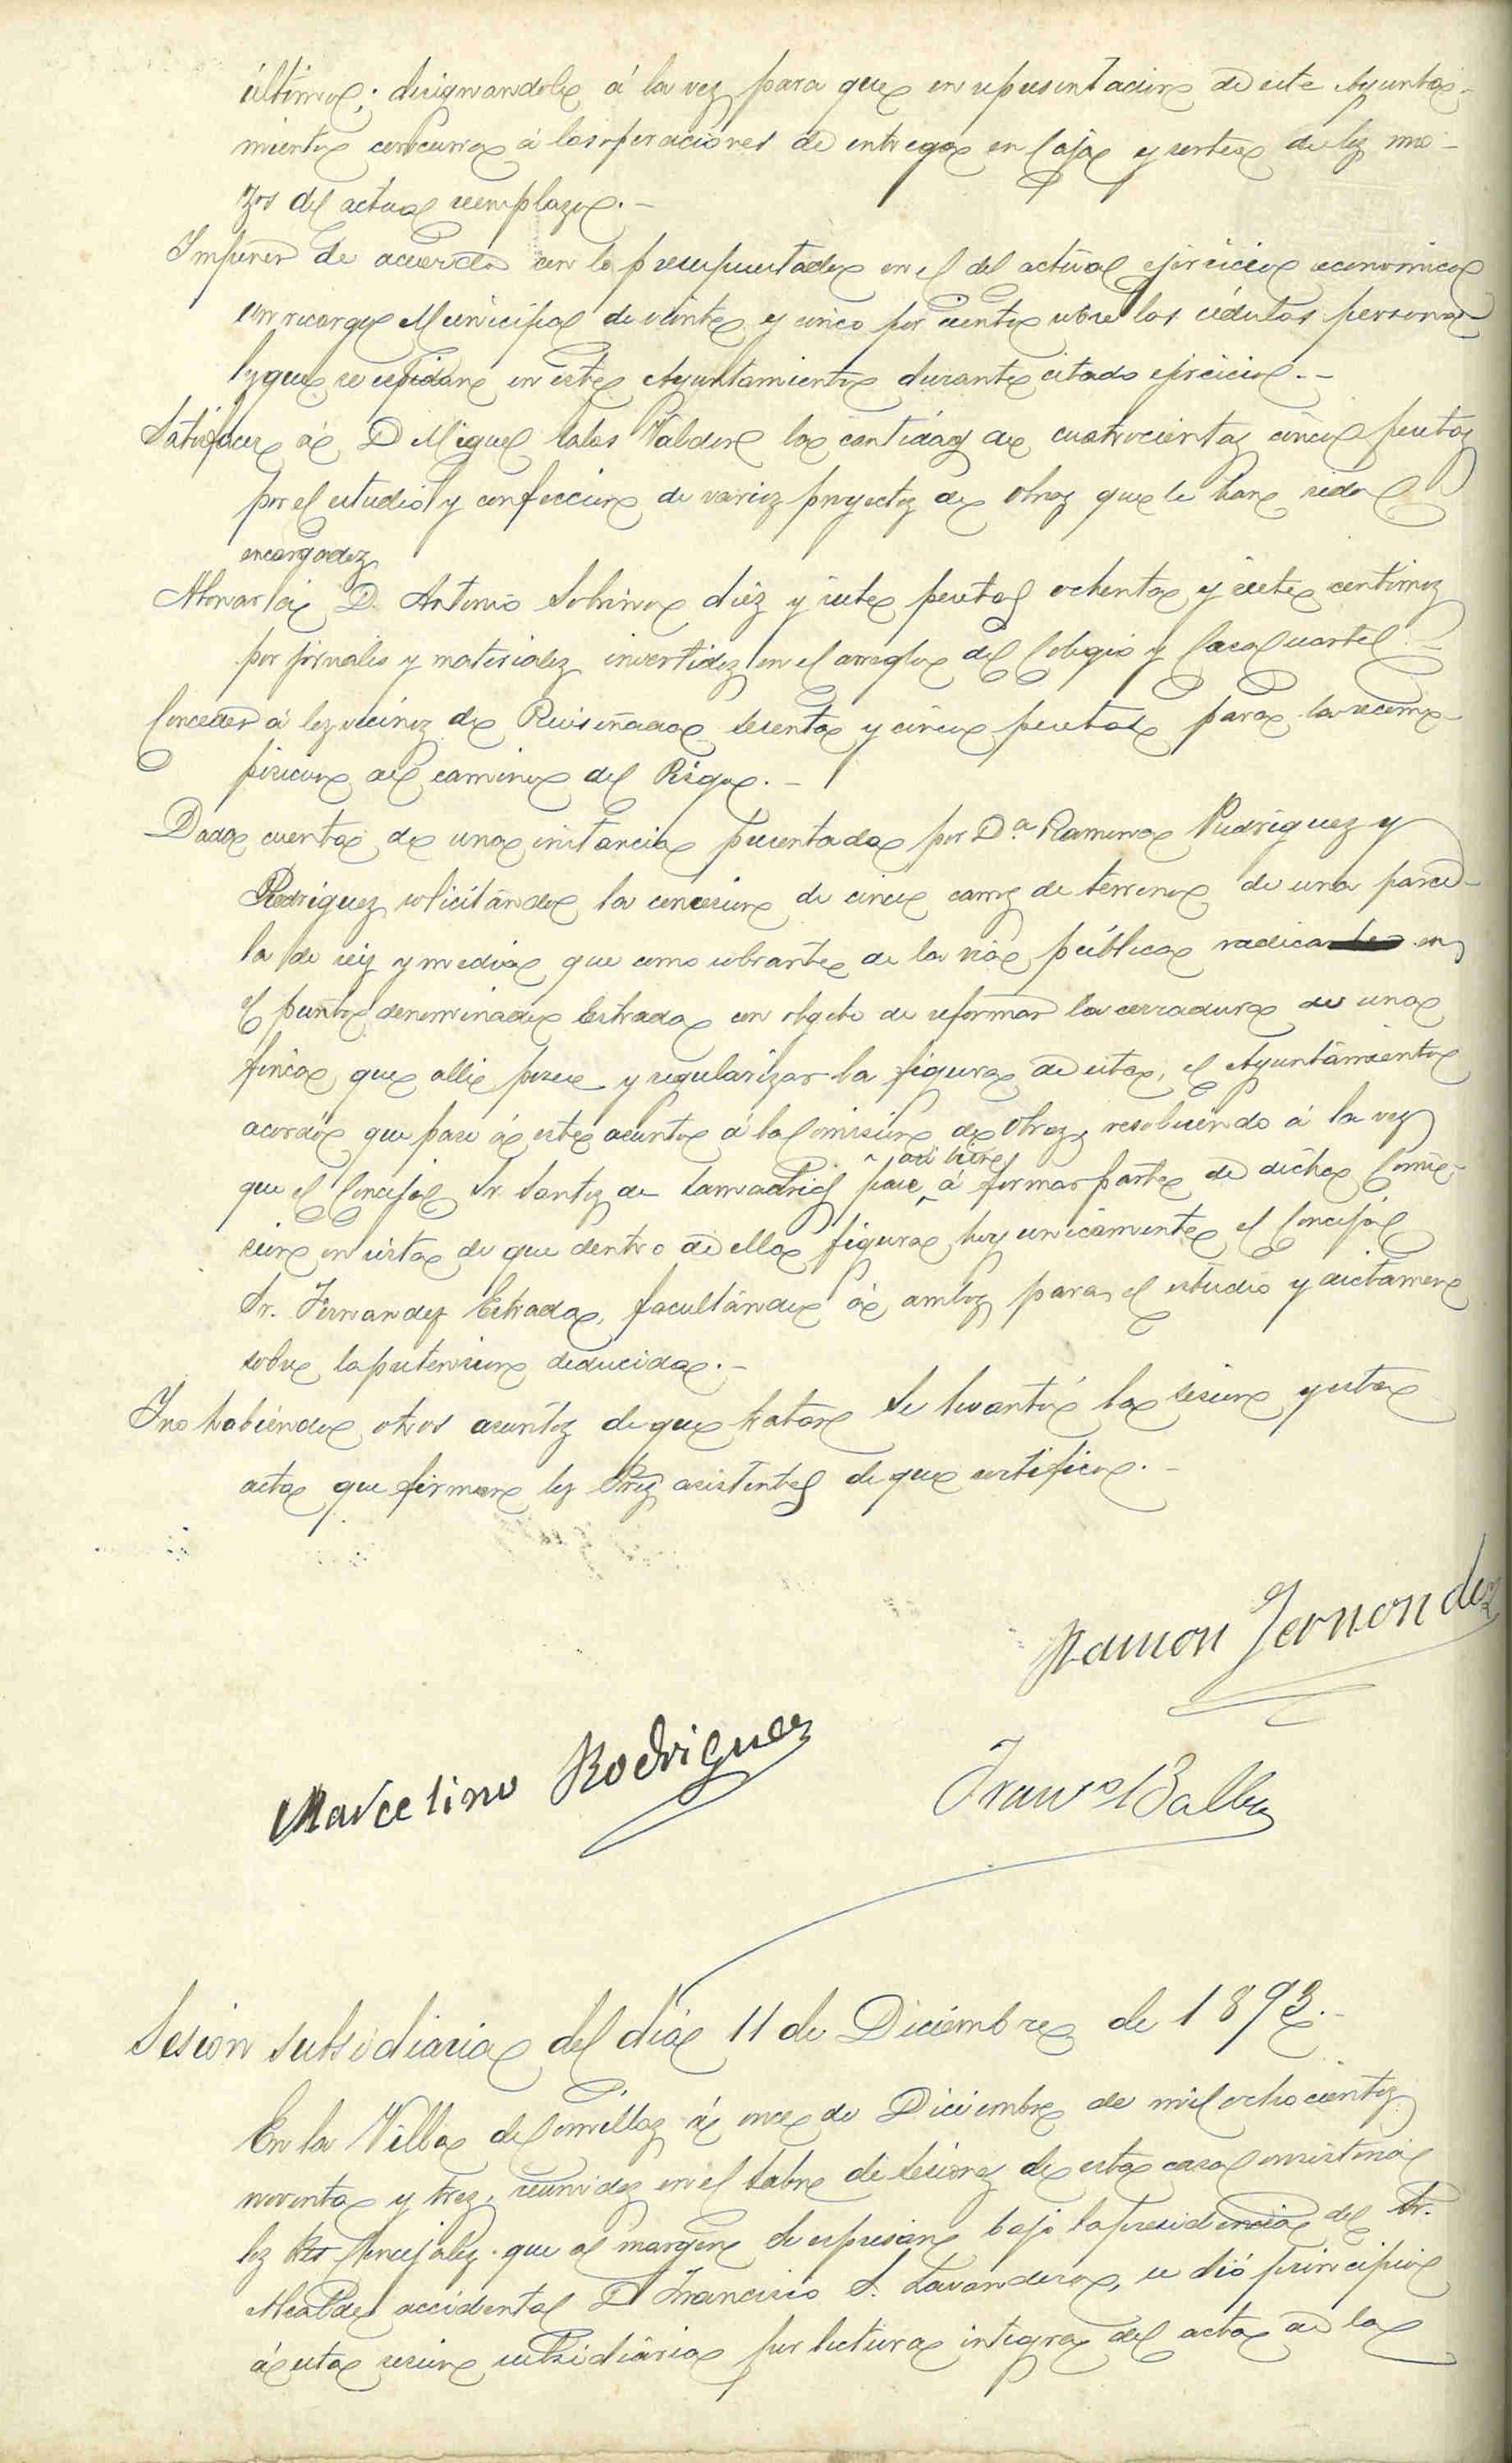 último; designandole á la vez para que en representacion de este Ayunta-
miento concurra á las operaciones de entrega en Caja y sorteo de los mo-
zos del actual reemplazo.-
Imponer de acuerdo con lo presupuestado en el del actual ejercicio economico
un recargo Municipal de veinte y cinco por ciento sobre las cédulas persona-
les que se espidan en este Ayuntamiento durante citado ejercicio.-
Satisfacer á D Miguel Calas Valdor la cantidad de cuatrocientas cinco pesetas
por el estudio y confeccion de varios proyectos de obras que le han sido
encargados
Abonar á D. Antonio Sobrino diez y siete pesetas ochenta y siete centimos
por jornales y materiales invertidos en el arreglo del Colegio y Casa Cuartel.-
Conceder á los vecinos de Ruiseñada sesenta y cinco pesetas para la recom-
posicion del camino del Risgo.-
Dada cuenta de una instancia presentada por Dª Ramona Rudriguez y
Rodriguez solicitando la concesion de cinco carros de terreno de una parce-
la de seis y media que como sobrante de la via pública radica en
el punto denominado Estrada con objeto de reformar la cerradura de una
finca que alli posee y regularizar la figura de esta, el Ayuntamiento
acordó que pase á este asunto á la Comision de Obras, resolviendo á la vez
asi bien
que el Concejal Sr. Santos de Lamadrid pase á formar parte de dicha Comi-
sion en vista de que dentro de ella figura hoy unicamente el Concejal
Sr. Fernandez Estrada, facultando á ambos para el estudio y dictamen
sobre la pretension deducida.-
Y no habiendo otros asuntos de que tratar se levantó la sesion y esta
acta que firman los Sres asistentes de que certifico.-
Ramon Fernandez
Marcelino Rodriguez
Franco Balbas
Sesion subsidiaria del dia 11 de Diciembre de 1893.-
En la Villa de Comillas á once de Diciembre de mil ochocientos
noventa y tres, reunidos en el Salon de Sesiones de esta casa consistorial
los Sres Concejales que al margen se espresan bajo la presidencia del Sr.
Alcalde accidental D Francisco S. Lavandero, se dió principio
á esta sesion subsidiaria por lectura integra del acta de la